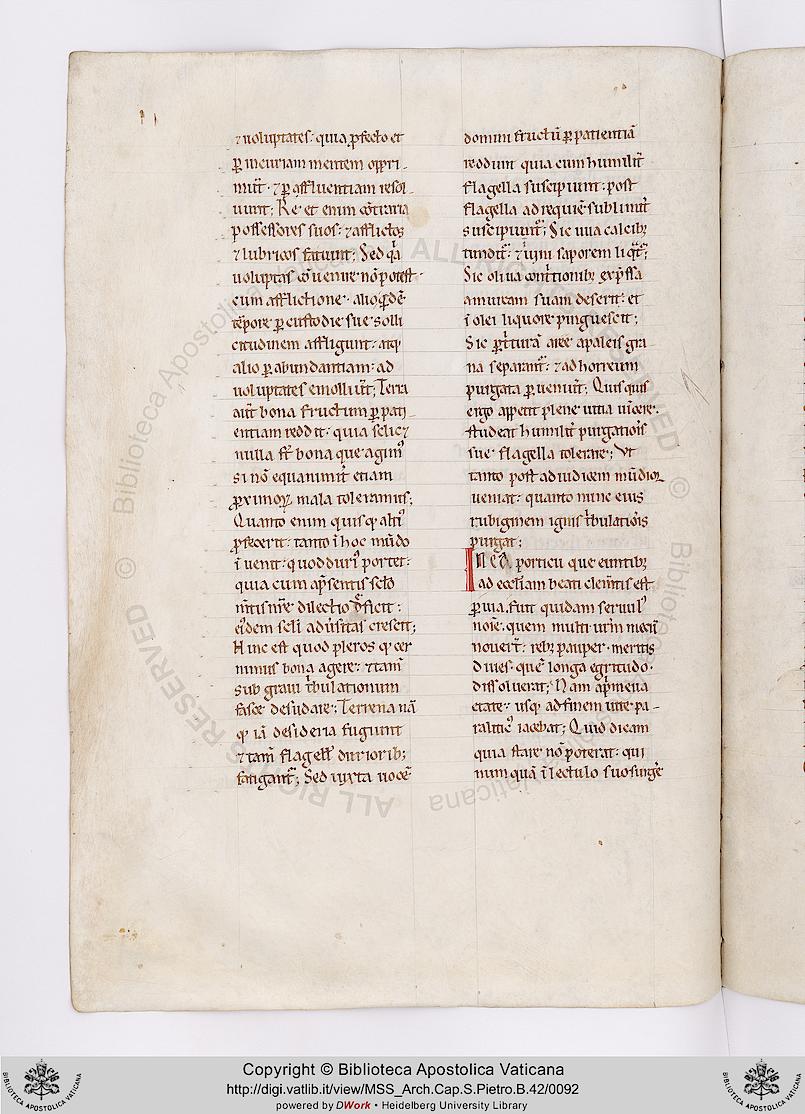 ⁊ uoluptates: quia ꝓfecto et
ꝑ incuriam mentem oppri-
mūt. ⁊ ꝑ affluentiam resol-
uunt; Re et enim cōtraria
possessores suos: ⁊ afflictos
⁊ lubricos faciunt; Sed q̄a
uoluptas cōuenire nō potest
cum afflictione. alio q̄dē
tēpore ꝑ custodie sue solli
citudinem affligunt: atq;
alio ꝑ abundantiam: ad
uoluptates emolliūt; Terra
aūt bona fructum ꝑ pati-
entiam reddit: quia
nulla st̄ bona que agim᷒
si nō equanimit̄ etiam
ꝓximoꝝ mala toleramus;
Quanto enim quisq; alti᷒
ꝓfecerit: tanto ī hoc mūdo
īuenit: quod duri᷒ portet:
quia cum a p̄sentis sc̄lo
mētis nr̄e dilectio deficit:
ei᷒dem sc̄li aduersitas crescit;
Hinc est quod pleros q; cer
nimus bona agere: ⁊ tam̄
sub graui tribulationum
fasce desudare; Terrena nā
q; iā desideria fugiunt
⁊ tam̄ flagell᷒ durioribꝫ
fatigant᷑; Sed iuxta uocē
domini fructū ꝑ patientiā
reddunt quia cum humilit̄
flagella suscipiunt: post
flagella ad requiē sublimit̄
suscipiunt᷑; Sic uua calcibꝫ
tundit᷑: ⁊ ī uini saporem liq̄t᷑;
Sic oliua contritionibꝫ exp̄ssa
amurcam suam deserit: et
ī olei liquore pinguescit;
Sic ꝑ t̄turā aree a paleis gra
na separant᷑: ⁊ ad horreum
purgata ꝑueniūt; Quisquis
ergo appetit plene uitia uincere.
studeat humilit̄ purgationis
sue flagella tolerare; Vt
tanto post ad iudicem mūdior
ueniat: quanto nunc eius
rubiginem ignis tribulationis
purgat;
IN ea porticu que euntibꝫ
ad eccl̄iam beati clem̄tis est
ꝑuia. fuit quidam seruul᷒
noīe. quem multi ur̄m mecū
nouer̄t: rebꝫ pauper. meritis
diues. quē longa egritudo.
dissoluerat; Nam a p̄meua
etate: usq; ad finem uite pa-
ralitic᷒ iacebat; Quid dicam
quia stare nō poterat: qui
num quā ī lectulo suo surgē
Biblioteca Apostolica Vaticana
© ALL RIGHTS RESERVED ©
Biblioteca Apostolica Vaticana
© ALL RIGHTS RESERVED
Copyright © Biblioteca Apostolica Vaticana
http://digi.vatlib.it/view/MSS_Arch.Cap.S.Pietro.B.42/0092
powered by DWork • Heidelberg University Library
BIBLIOTECA APOSTOLICA VATICANA
BIBLIOTECA APOSTOLICA VATICANA